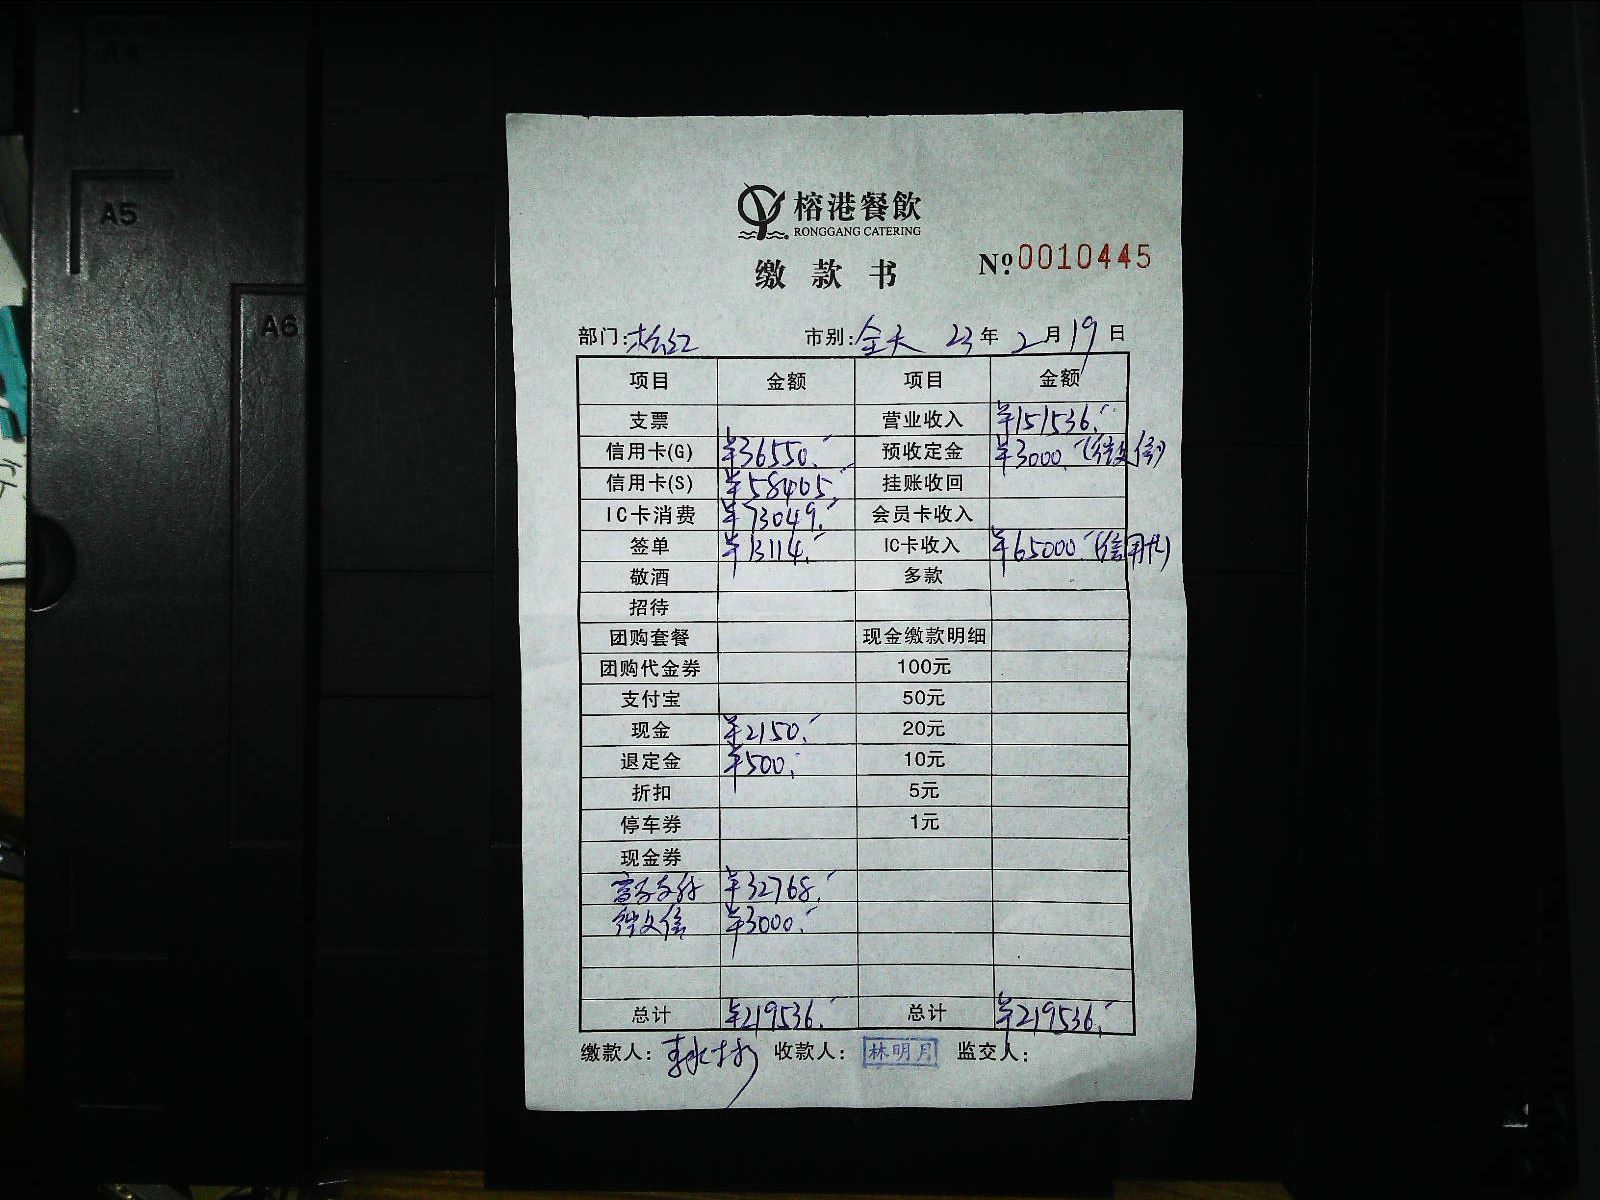 A4
A5
A6
榕港餐飲
RONGGANG CATERING
缴款书
Nº 0010445
部门: 市别:全天 23年2月19日
项目 金额 项目 金额
支票 营业收入 ¥151536.-
信用卡(G) ¥36550.- 预收定金 ¥3000.-(微信)
信用卡(S) ¥58405.- 挂账收回
IC卡消费 ¥73049.- 会员卡收入
签单 ¥13114.- IC卡收入 ¥65000.-(信用卡)
敬酒 多款
招待
团购套餐 现金缴款明细
团购代金券 100元
支付宝 50元
现金 ¥2150.- 20元
退定金 ¥500.- 10元
折扣 5元
停车券 1元
现金券
支付 ¥32768.-
微信 ¥3000.-
总计 ¥219536.- 总计 ¥219536.-
缴款人: 收款人:林明月 监交人: